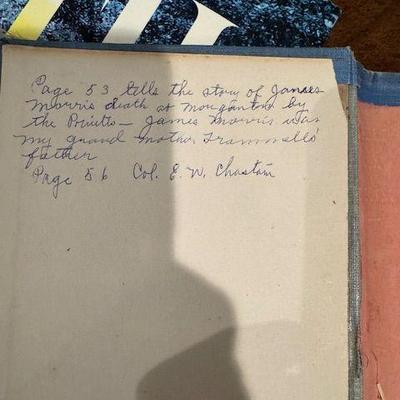 Page 53 tells the story of James
Morris death at Morganton by
the Pruitts — James Morris was
my grand mother Trammells'
father
Page 56 Col. E. W. Chastain